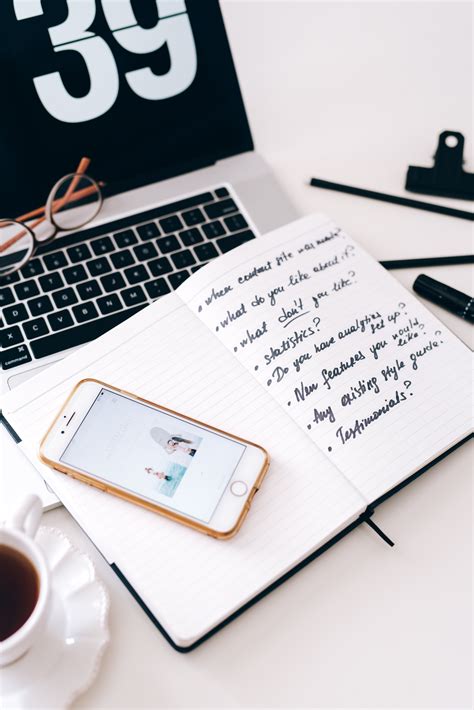 39
where content site was made?
• what do you like about it?
• what don't you like?
• statistics?
• Do you have analytics set up?
• New features you would like?
• Any existing style guide?
• Testimonials?